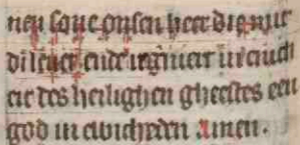 nen sone onsen heer die mit
di leuet ende regniert in enich
eit des heilighen gheestes een
god in ewicheiden amen.